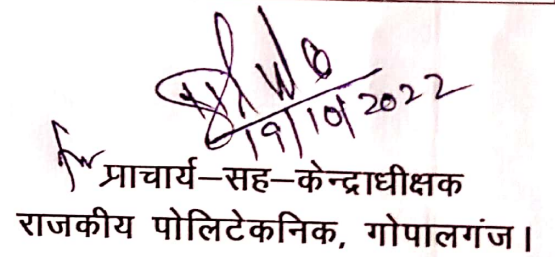 19/10/2022
for प्राचार्य–सह–केन्द्राधीक्षक
राजकीय पोलिटेकनिक, गोपालगंज।